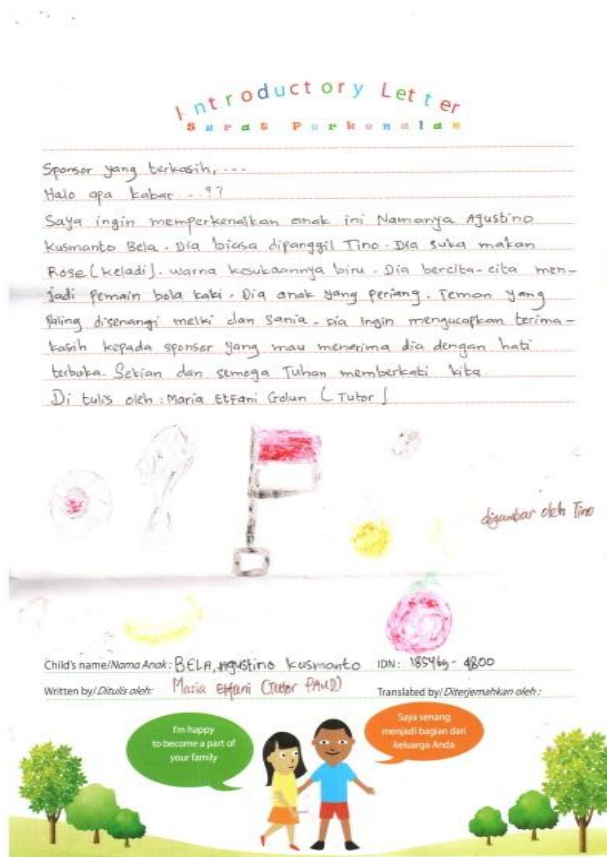 Introductory Letter
Surat Perkenalan
Sponsor yang terkasih, ---
Halo apa kabar - - ??
Saya ingin memperkenalkan anak ini Namanya Agustino
Kusmanto Bela. Dia biasa dipanggil Tino. Dia suka makan
Rose (keladi). warna kesukaannya biru. Dia bercita-cita men-
jadi pemain bola kaki. Dia anak yang periang. Teman yang
Paling disenangi melki dan sania. Dia ingin mengucapkan terima-
kasih kepada sponsor yang mau menerima dia dengan hati
terbuka. Sekian dan semoga Tuhan memberkati kita
Di tulis oleh : Maria Etfani Golun (Tutor)
digambar oleh Tino
Child's name/Nama Anak: BELA, Agustino kusmanto IDN: 185469-4800
Written by/Ditulis oleh: Maria Etfani (Tutor PAUD) Translated by/Diterjemahkan oleh:
I'm happy
to become a part of
your family
Saya senang
menjadi bagian dari
keluarga Anda